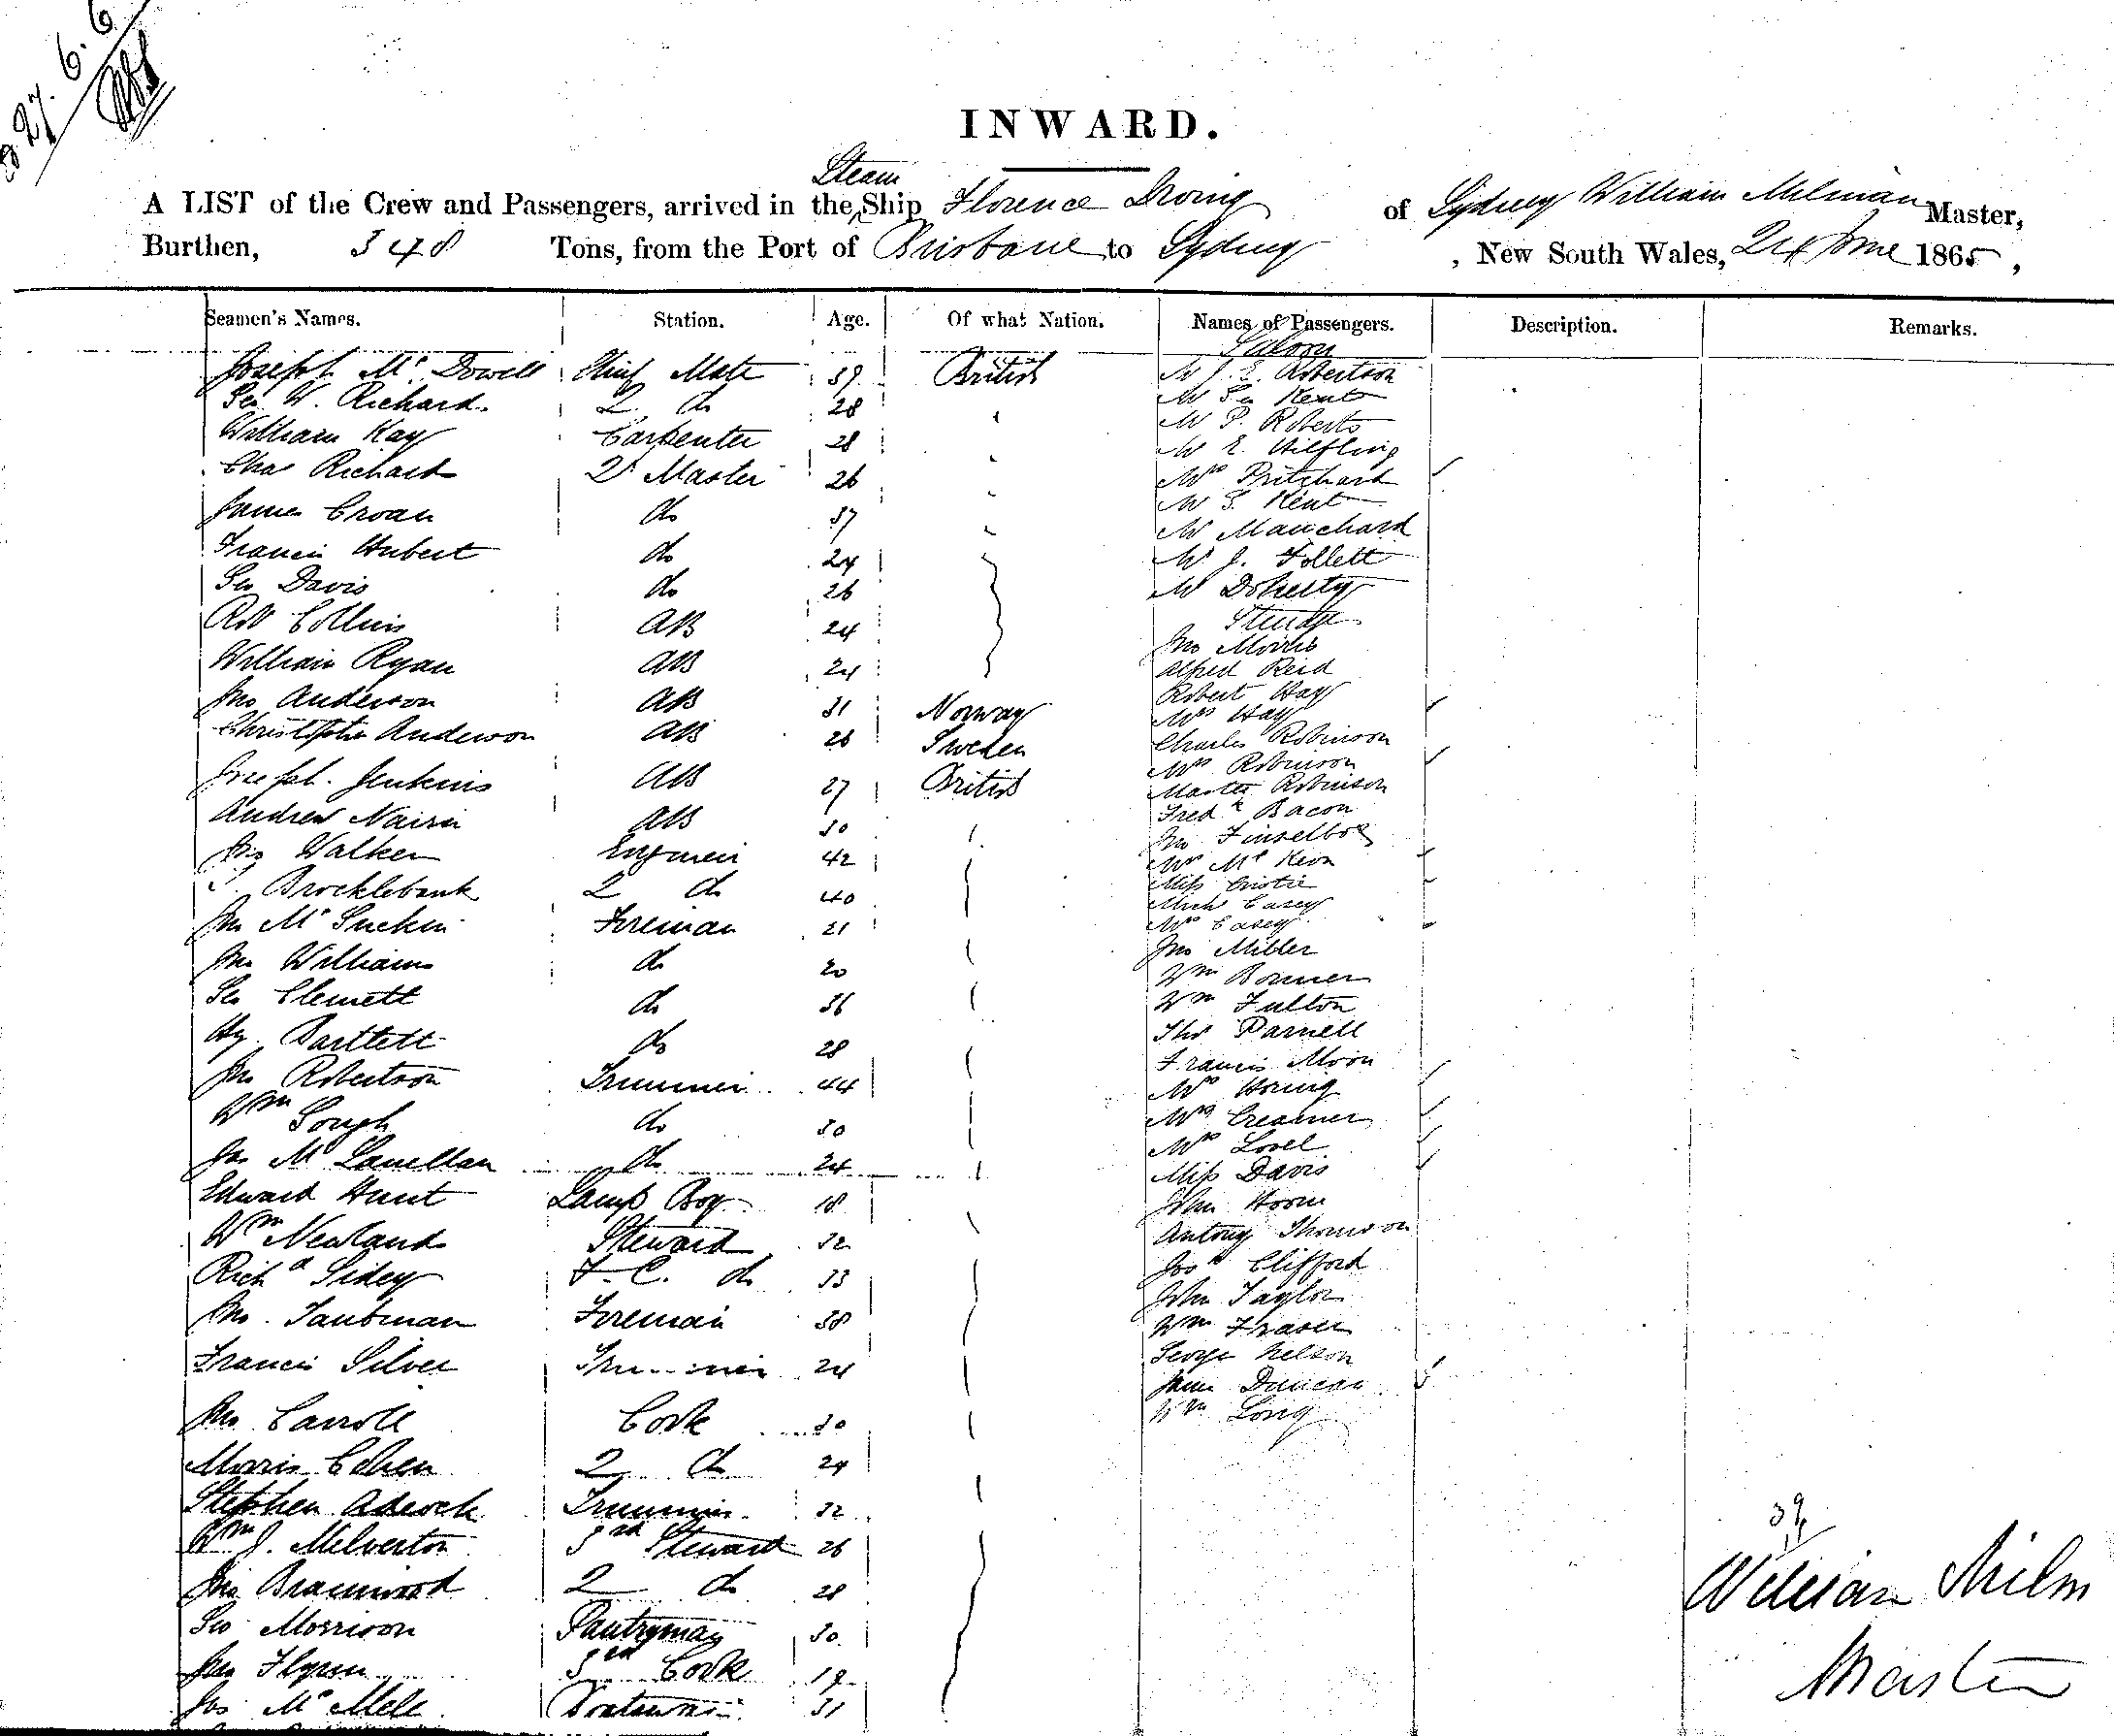 27. 6. 6
INWARD.
Steam
A LIST of the Crew and Passengers, arrived in the Ship Florence Irving of Sydney William Milman Master,
Burthen, 348 Tons, from the Port of Brisbane to Sydney , New South Wales, 24 June 1865,
Seamen's Names. Station. Age. Of what Nation. Names of Passengers. Description. Remarks.
Saloon
Joseph Mc Dowell Chief Mate 39 British Mr J. E. Robertson
Geo W. Richards 2 do 28 Mr Geo Kent
William Kay Carpenter 28 Mr P. Roberts
Chas Richard 2r Master 26 Mr E. Hilfling
Mrs Pritchard
James Croan do 37 Mr S. Kent
Mr Manchard
Francis Hubert do 24 Mr J. Follett
Geo Davis do 26 Mr Doherty
Robt Collins AB 24 Steerage
Jno Morris
William Ryan AB 24 Alfred Reid
Robert Hay
Jno Anderson AB 31 Norway Mrs Hay
Christopher Anderson AB 26 Sweden Charles Robinson
Mrs Robinson
Joseph Jenkins AB 27 British Master Robinson
Andrew Nairn AB 30 Fredk Bacon
Jno
Walker Engineer 42 Mrs Mc Keon
Brocklebank 2 do 40 Miss Cristie
Mich Casey
Jno Mc Fireman 21 Mrs Casey
Jno Williams do 20 Jno Miller
Wm Bonner
Geo Clemett do 36 Wm Fulton
Hy. Bartlett do 28 Thos Parnell
Francis Moon
Jno Robertson Trimmer 44 Mrs Horing
Wm Gough do 30 Mrs Creamer
Mrs Lovel
Jas Mc Lanellan do 24 Miss Davis
Edward Hunt Lamp Boy 18 John Horne
Wm Newland Steward 32 Antony Thomson
Richd Sidey F. C. do 33 Josh Clifford
John Taylor
Jno. Taubman Fireman 38 Wm Fraser
Francis Silver Trimmer 24 George Nelson
James Duncan
Jno Carroll Cook 30 Wm Long
Morris Cohen 2 do 24
Stephen Adcock Trimmer 32
Wm J. Melverton 3rd Steward 26
Jno Bramwood 2 do 28
Geo Morrison Pantryman 30
Jno Flynn 3rd Cook 19
Jos Mc Mell Boatswain 31
39
William Milm
Master